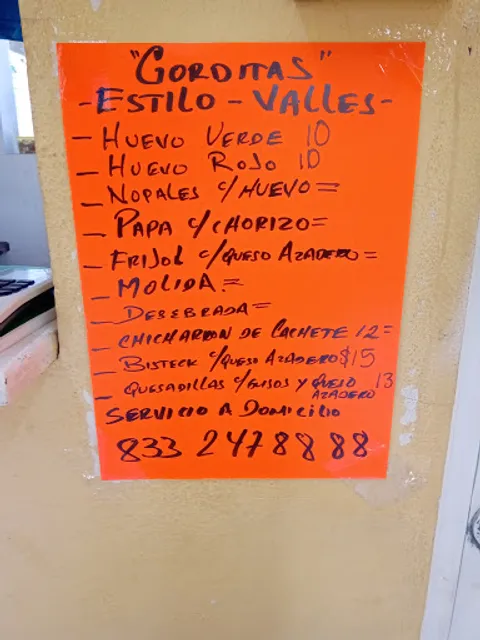 "GORDITAS"
- ESTILO - VALLES -
- HUEVO VERDE 10
- HUEVO ROJO 10
- NOPALES C/HUEVO =
- PAPA C/CHORIZO =
- FRIJOL C/QUESO AZADERO =
- MOLIDA =
- DESEBRADA =
- CHICHARRON DE CACHETE 12 =
- BISTECK C/QUESO AZADERO $15
- QUESADILLAS C/GUISOS Y QUESO AZADERO 13
SERVICIO A DOMICILIO
833 247 8888